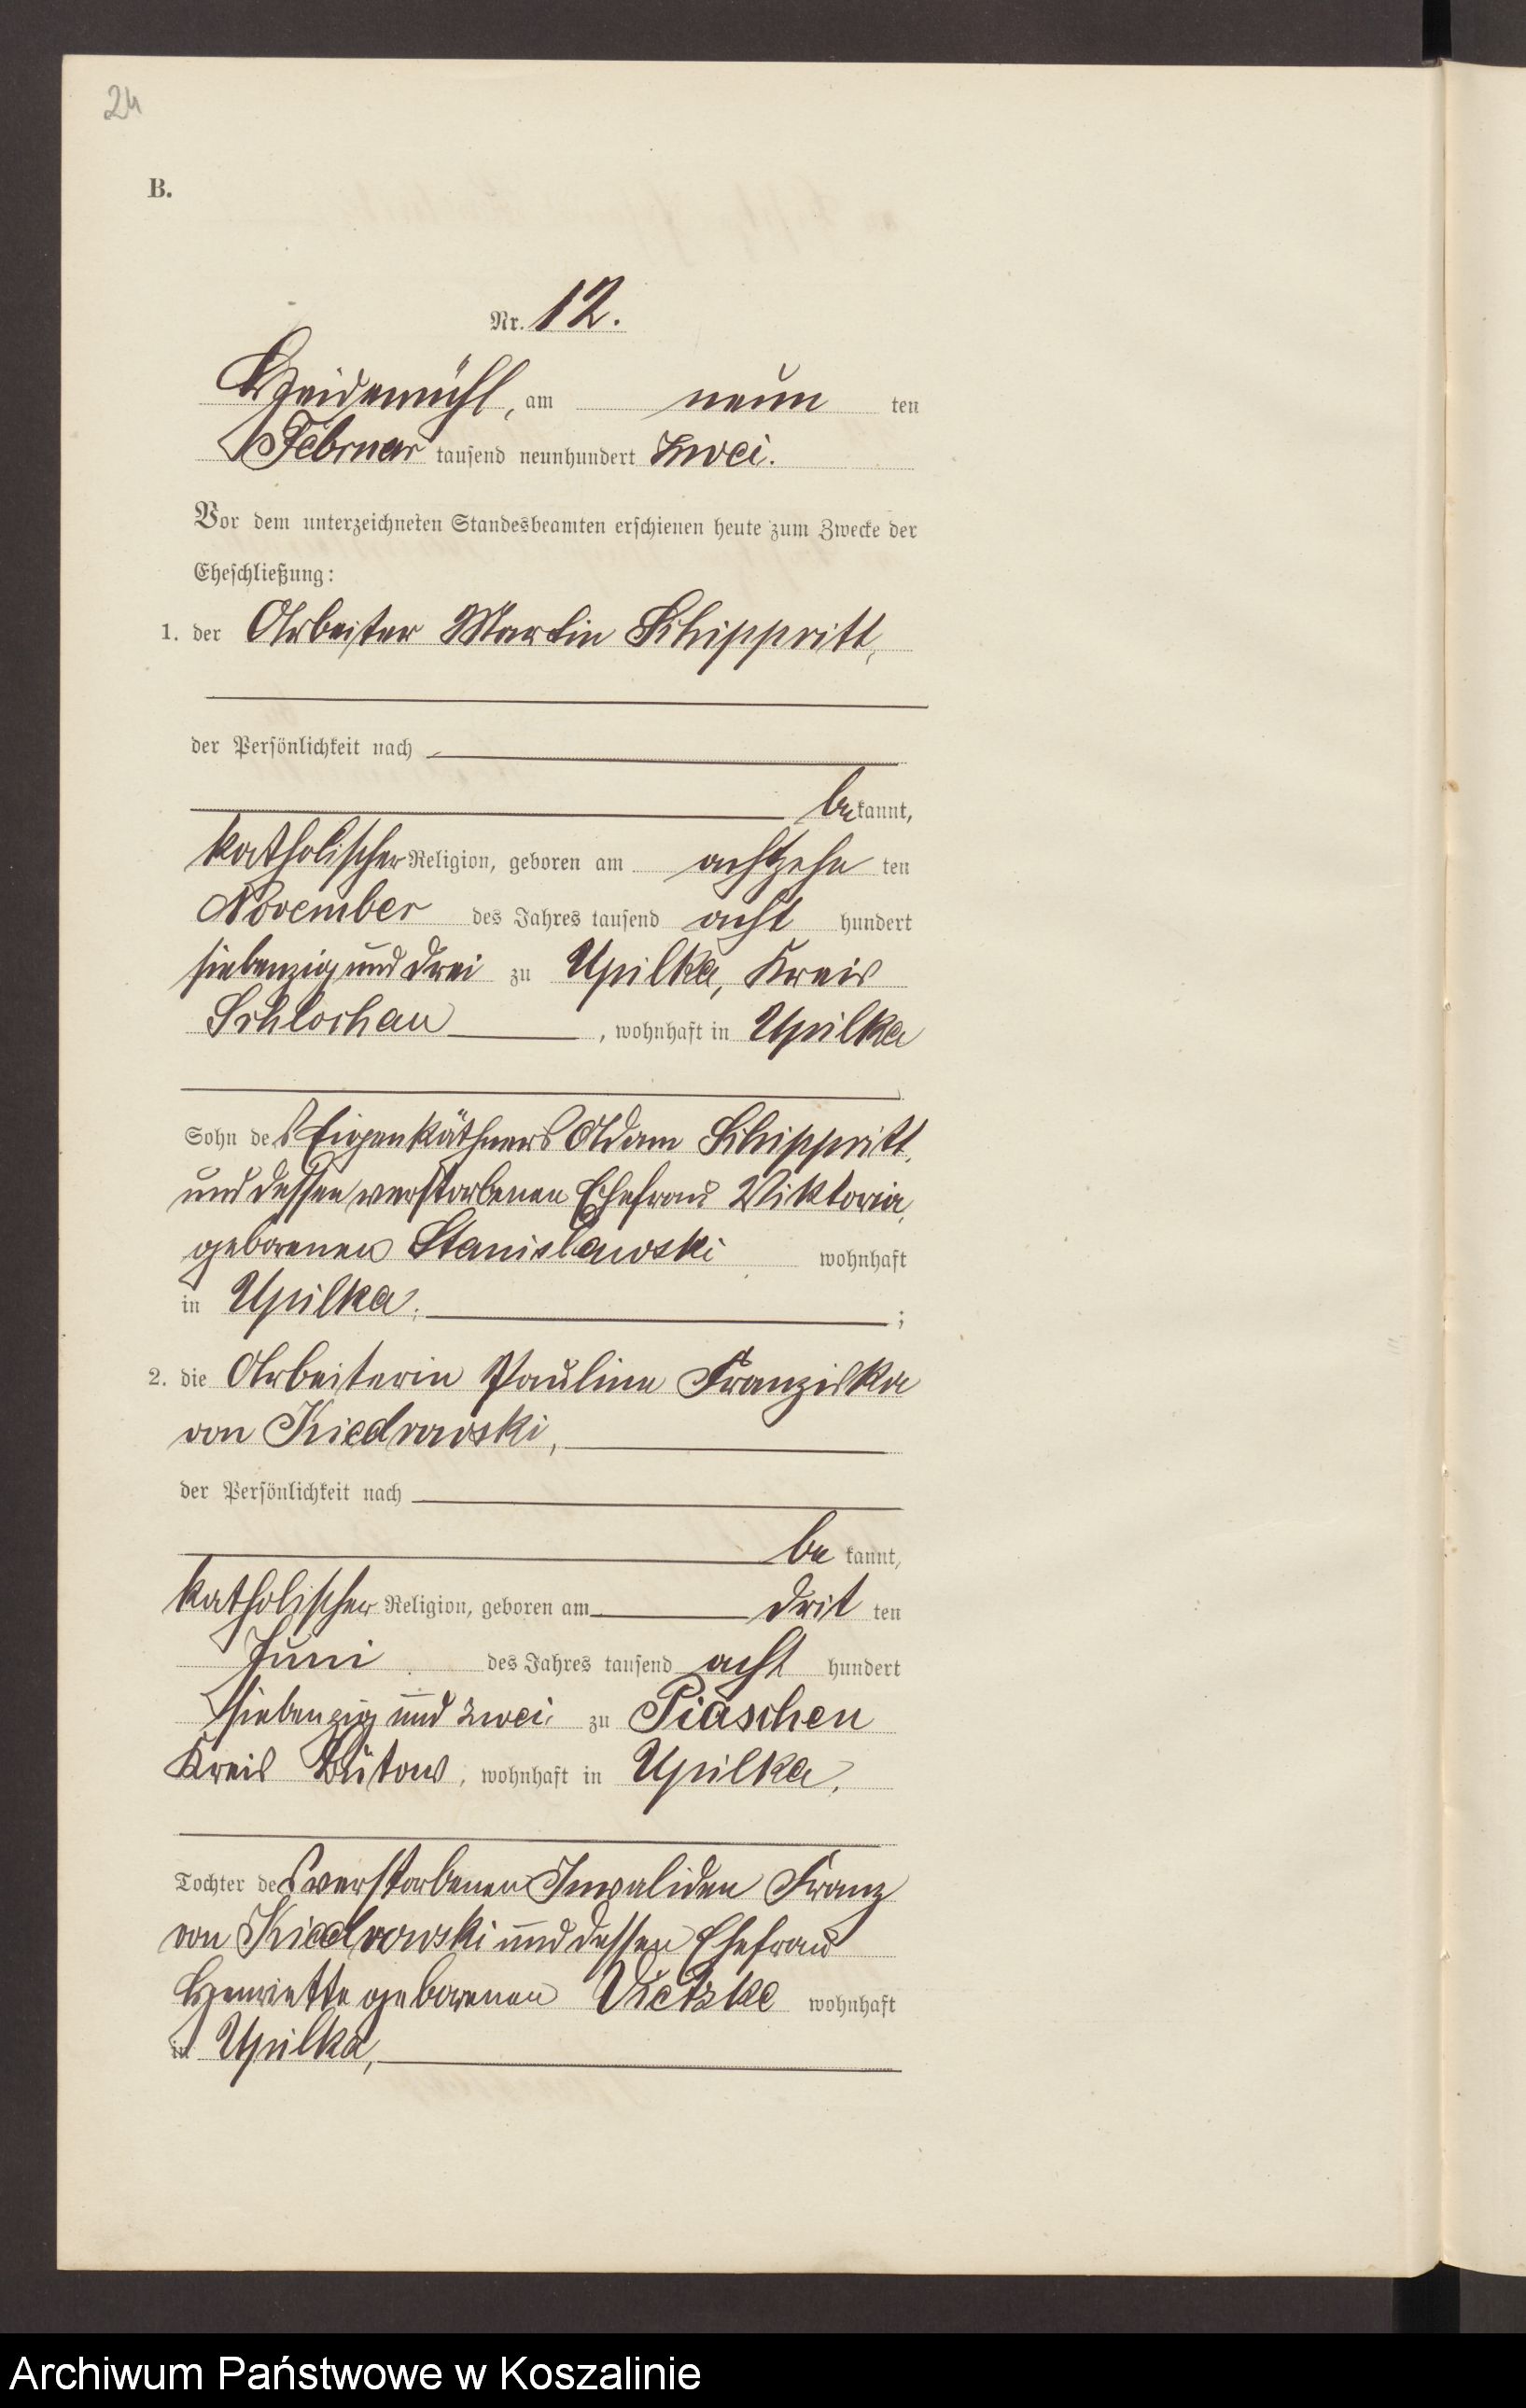 24
B.
Nr. 12.
Heidemühl, am neun ten
Februar tausend neunhundert zwei.
Vor dem unterzeichneten Standesbeamten erschienen heute zum Zwecke der
Eheschließung:
1. der Arbeiter Martin Schippritt,
der Persönlichkeit nach
be kannt,
katholischer Religion, geboren am achtzehn ten
November des Jahres tausend acht hundert
siebenzig und drei zu Upilka, Kreis
Schlochau, wohnhaft in Upilka
Sohn des Eigenkäthners Adam Schippritt,
und dessen verstorbenen Ehefrau Viktoria,
geborenen Stanislawski wohnhaft
in Upilka. ;
2. die Arbeiterin Pauline Franziska
von Kiedrowski,
der Persönlichkeit nach
be kannt,
katholischer Religion, geboren am drit ten
Juni des Jahres tausend acht hundert
siebenzig und zwei zu Piaschen
Kreis Bütow, wohnhaft in Upilka,
Tochter des verstorbenen Invaliden Franz
von Kiedrowski und dessen Ehefrau
Henriette geborenen Vietzke wohnhaft
in Upilka,
Archiwum Państwowe w Koszalinie